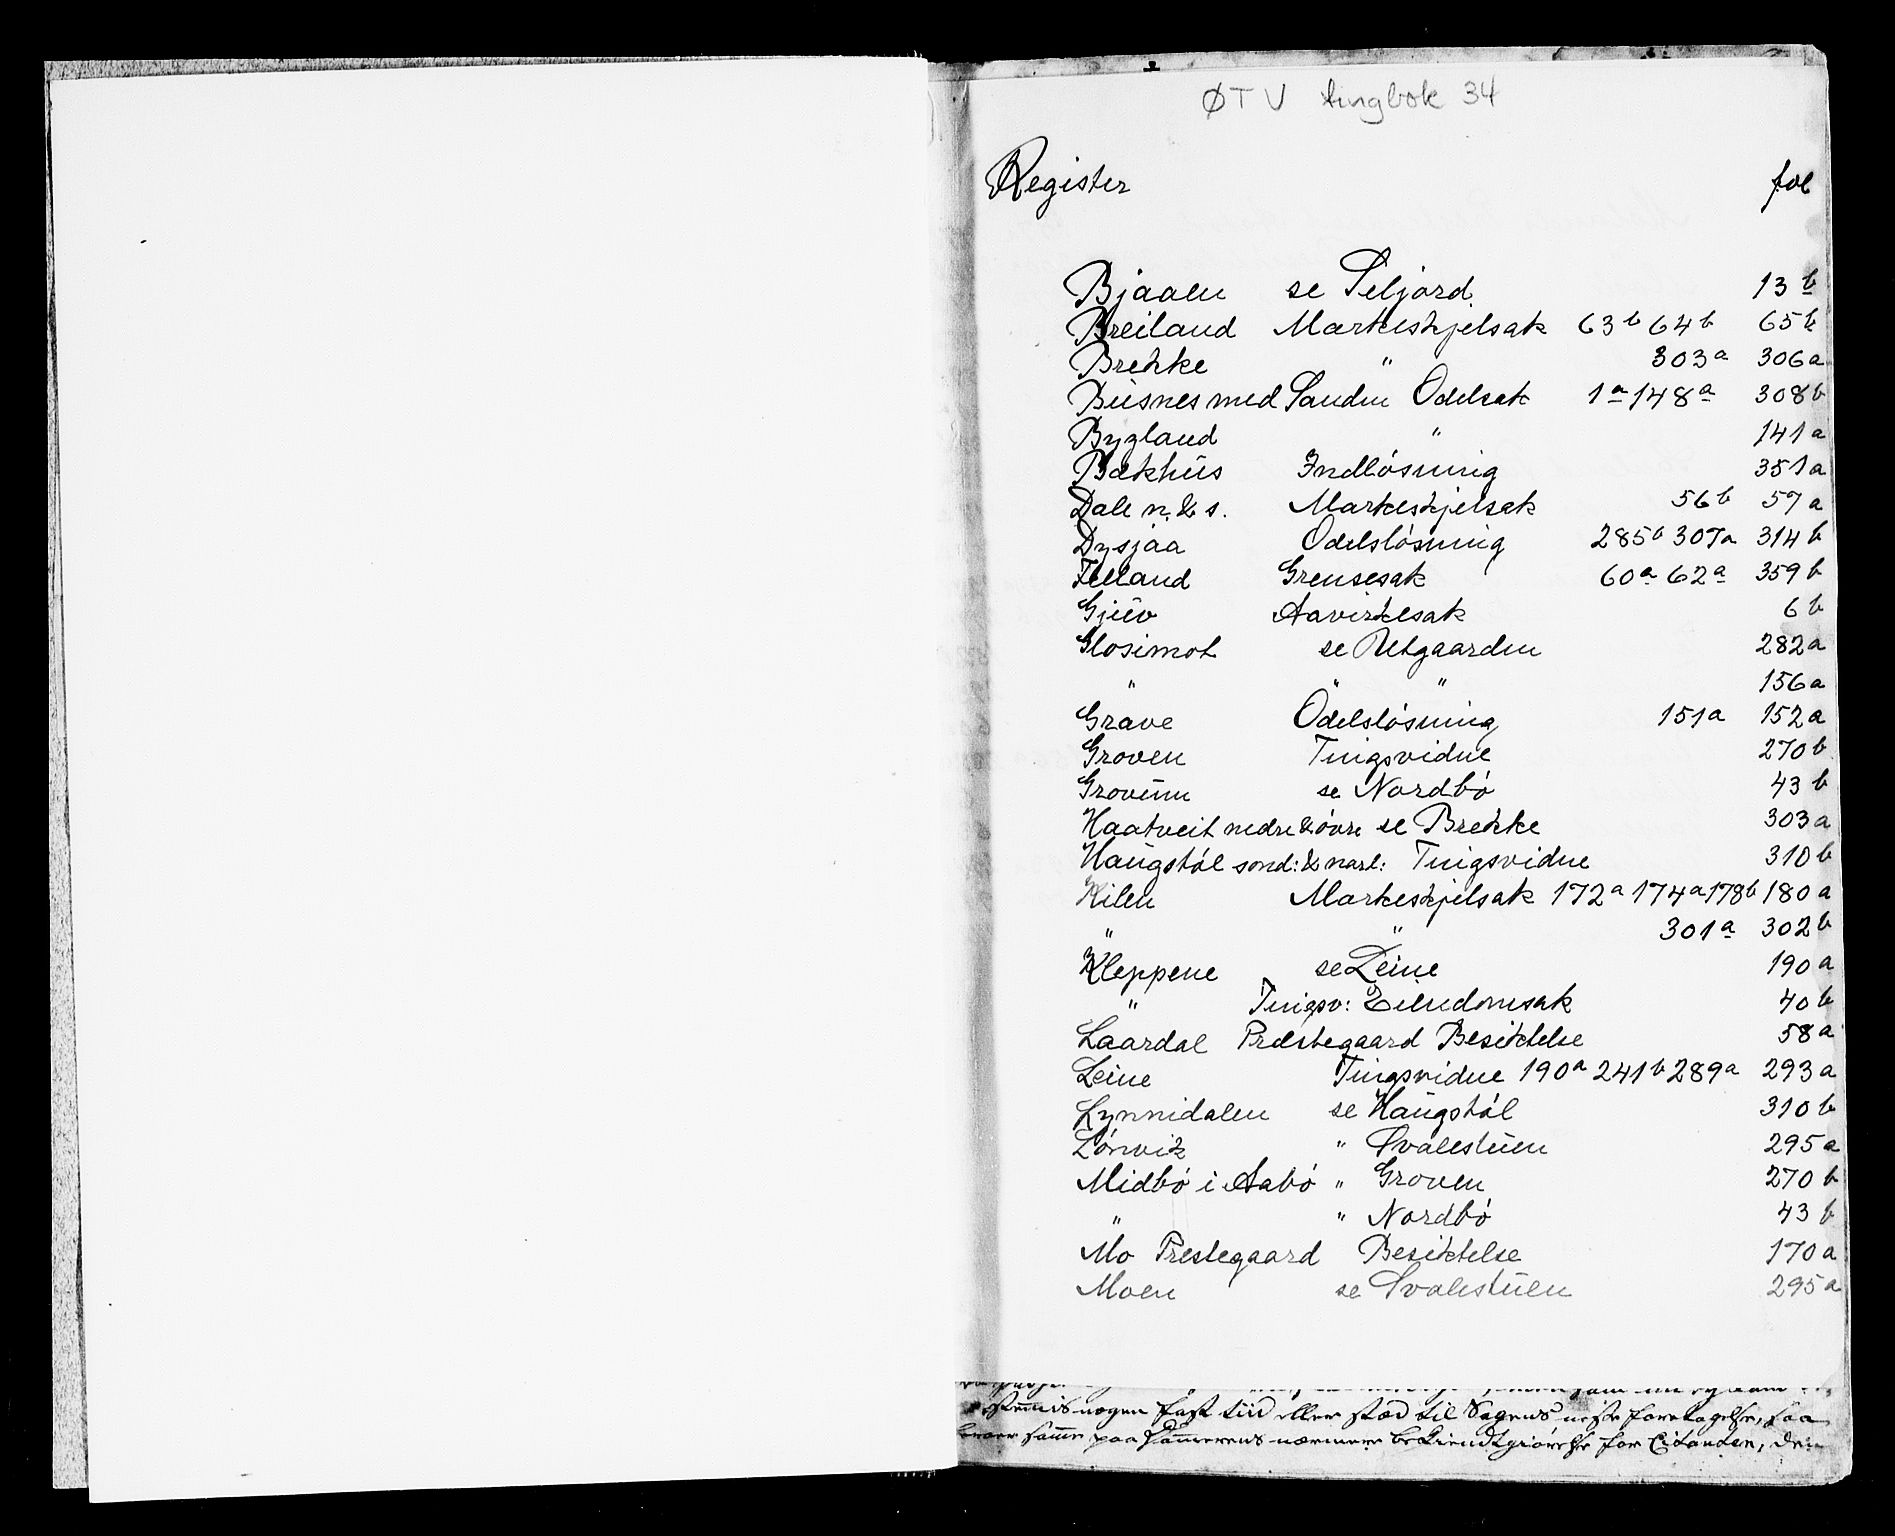 ØTV tingbok 34
Register fol
Bjaaen se Seljord 13 b
Breiland Markeskjelsak 63 b 64 b 65 b
Brekke " 303 a 306 a
Büsnes med Sanden Odelsak 1 a 148 a 308 b
Bygland " 141 a
Bækhüs Indlösning 351 a
Dale n. & s. Markeskjelsak 56 b 57 a
Dysjaa Odelslösning 285 b 307 a 314 b
Felland Grensesak 60 a 62 a 359 b
Gjüv Aavirkesak 6 b
Glosimot se Utgaarden 282 a
" " " 156 a
Grave Odelslösning 151 a 152 a
Groven Tingsvidne 270 b
Grovünn se Nordbö 43 b
Haatveit nedre & övre se Brekke 303 a
Haügstöl sønd: & nørl: Tingsvidne 310 b
Kilen Markeskjelsak 172 a 174 a 178 b 180 a
" " 301 a 302 b
Kleppene se Leine 190 a
" Tingsv: Eiendomsak 40 b
Laardal Præstegaard Besiktelse 58 a
Leine Tingsvidne 190 a 241 b 289 a 293 a
Lynnidalen se Haügstöl 310 b
Lönvik " Svalestüen 295 a
Midbö i Aabö " Groven 270 b
" " Nordbö 43 b
Mo Prestegaard Besiktelse 170 a
Moen se Svalestüen 295 a
nogen fast tiid eller stæd til Sagens neste foretagelse, saa
samme paa Dommerens nærmere bekiendtgiörelse for Citanten, den